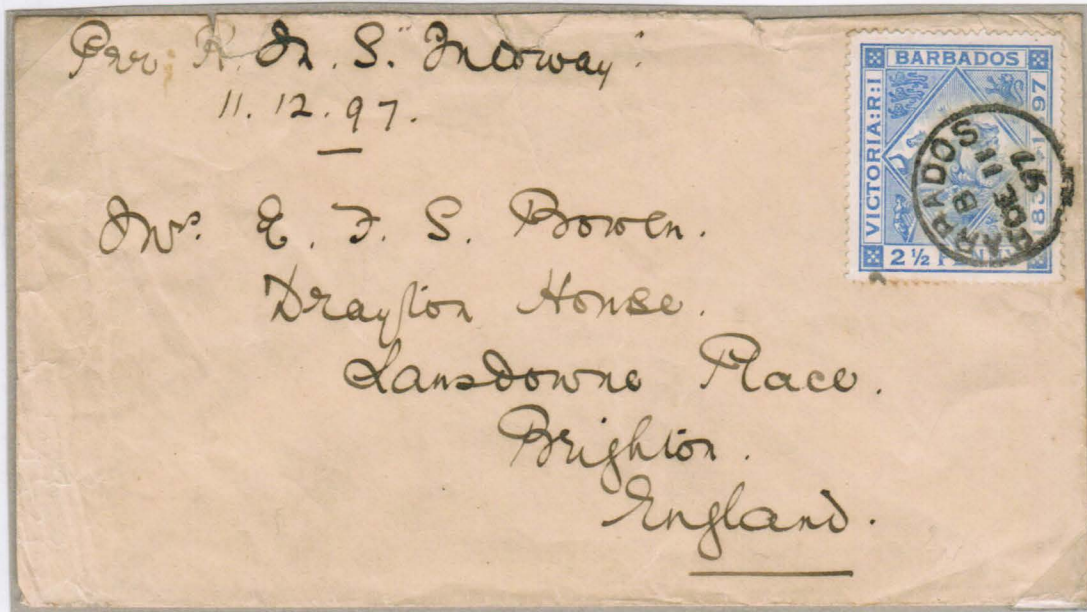 Per R. M. S.
11. 12. 97.
Mrs. E. F. S. Bowen.
Drayton House.
Lansdowne Place.
Brighton.
England.
BARBADOS
VICTORIA:R:I
1897
2½ PENNY
BARBADOS
B
11
DE
97